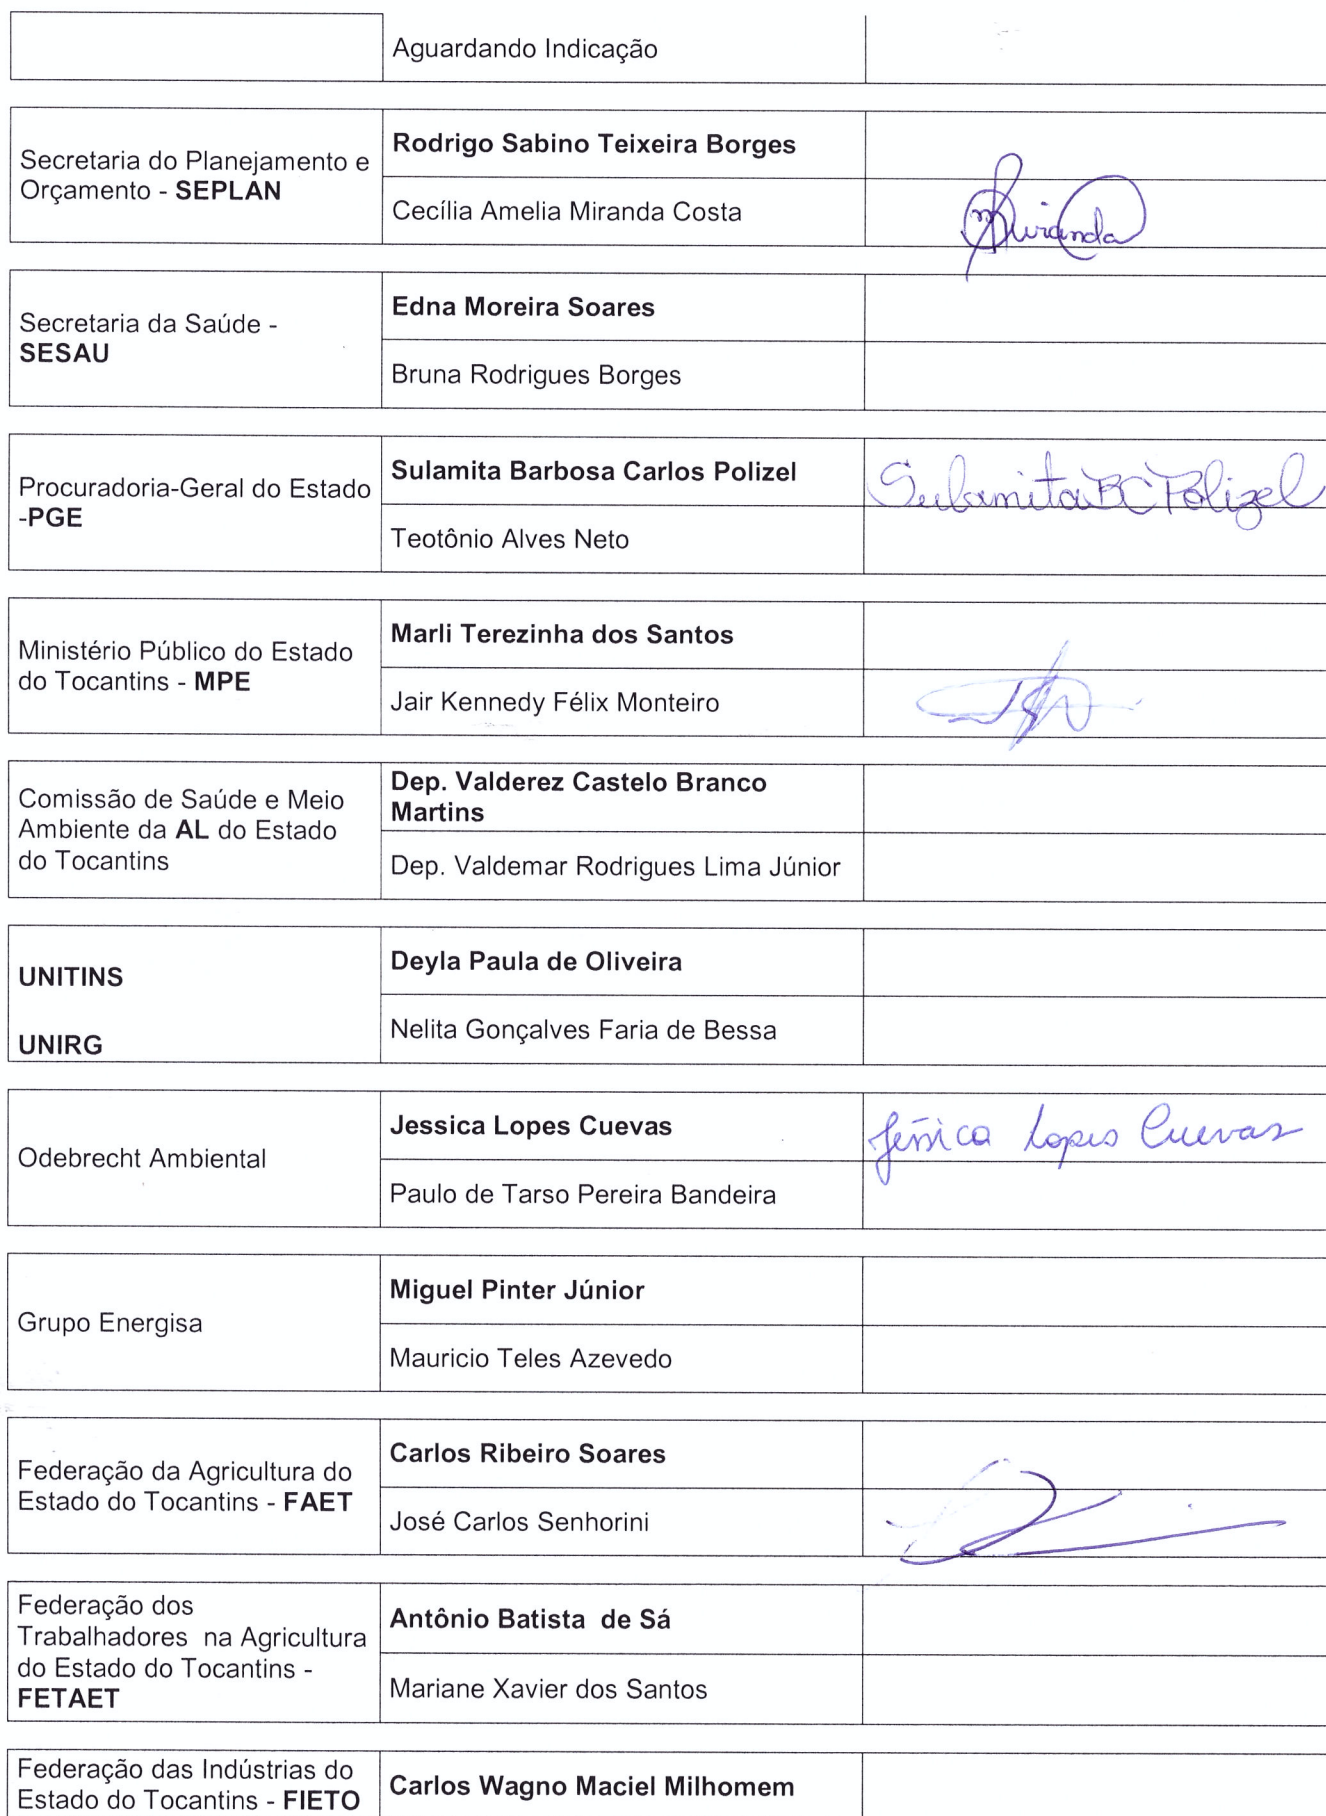 Aguardando Indicação
Secretaria do Planejamento e
Orçamento - SEPLAN
Rodrigo Sabino Teixeira Borges
Cecília Amelia Miranda Costa
Miranda
Secretaria da Saúde -
SESAU
Edna Moreira Soares
Bruna Rodrigues Borges
Procuradoria-Geral do Estado
-PGE
Sulamita Barbosa Carlos Polizel
Sulamita BC Polizel
Teotônio Alves Neto
Ministério Público do Estado
do Tocantins - MPE
Marli Terezinha dos Santos
Jair Kennedy Félix Monteiro
Comissão de Saúde e Meio
Ambiente da AL do Estado
do Tocantins
Dep. Valderez Castelo Branco
Martins
Dep. Valdemar Rodrigues Lima Júnior
UNITINS
UNIRG
Deyla Paula de Oliveira
Nelita Gonçalves Faria de Bessa
Odebrecht Ambiental
Jessica Lopes Cuevas
Jéssica Lopes Cuevas
Paulo de Tarso Pereira Bandeira
Grupo Energisa
Miguel Pinter Júnior
Mauricio Teles Azevedo
Federação da Agricultura do
Estado do Tocantins - FAET
Carlos Ribeiro Soares
José Carlos Senhorini
Federação dos
Trabalhadores na Agricultura
do Estado do Tocantins -
FETAET
Antônio Batista de Sá
Mariane Xavier dos Santos
Federação das Indústrias do
Estado do Tocantins - FIETO
Carlos Wagno Maciel Milhomem